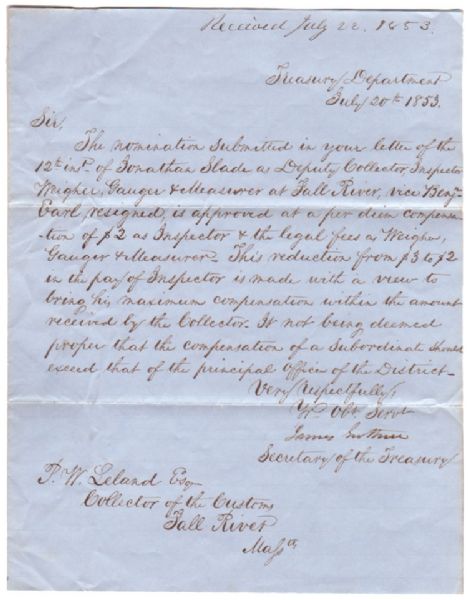 Received July 22. 1853.
Treasury Department
July 20th 1853.
Sir,
The nomination submitted in your letter of the
12th inst. of Jonathan Slade as Deputy Collector, Inspector
Weigher, Gauger & Measurer at Fall River, vice Benjn
Earl, resigned, is approved at a per deim compensa-
tion of $2 as Inspector & the legal fees a Weigher,
Gauger & Measurer. This reduction from $3 to $2
in the pay of Inspector is made with a view to
bring his maximum compensation within the amount
received by the Collector. It not being deemed
proper that the compensation of a Subordinate should
exceed that of the principal Officer of the District.
Very Respectfully
Yr Obt. Servt
James Guthrie
Secretary of the Treasury
P. W. Leland Esq
Collector of the Customs
Fall River
Massts